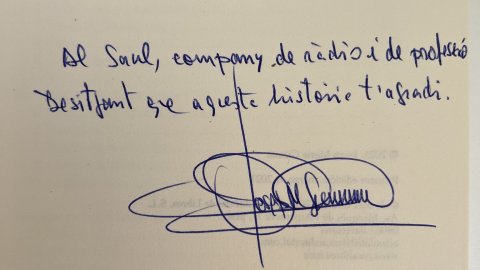 Al Saul, company de ràdio i de professió
Desitjant que aquesta història t'agradi.